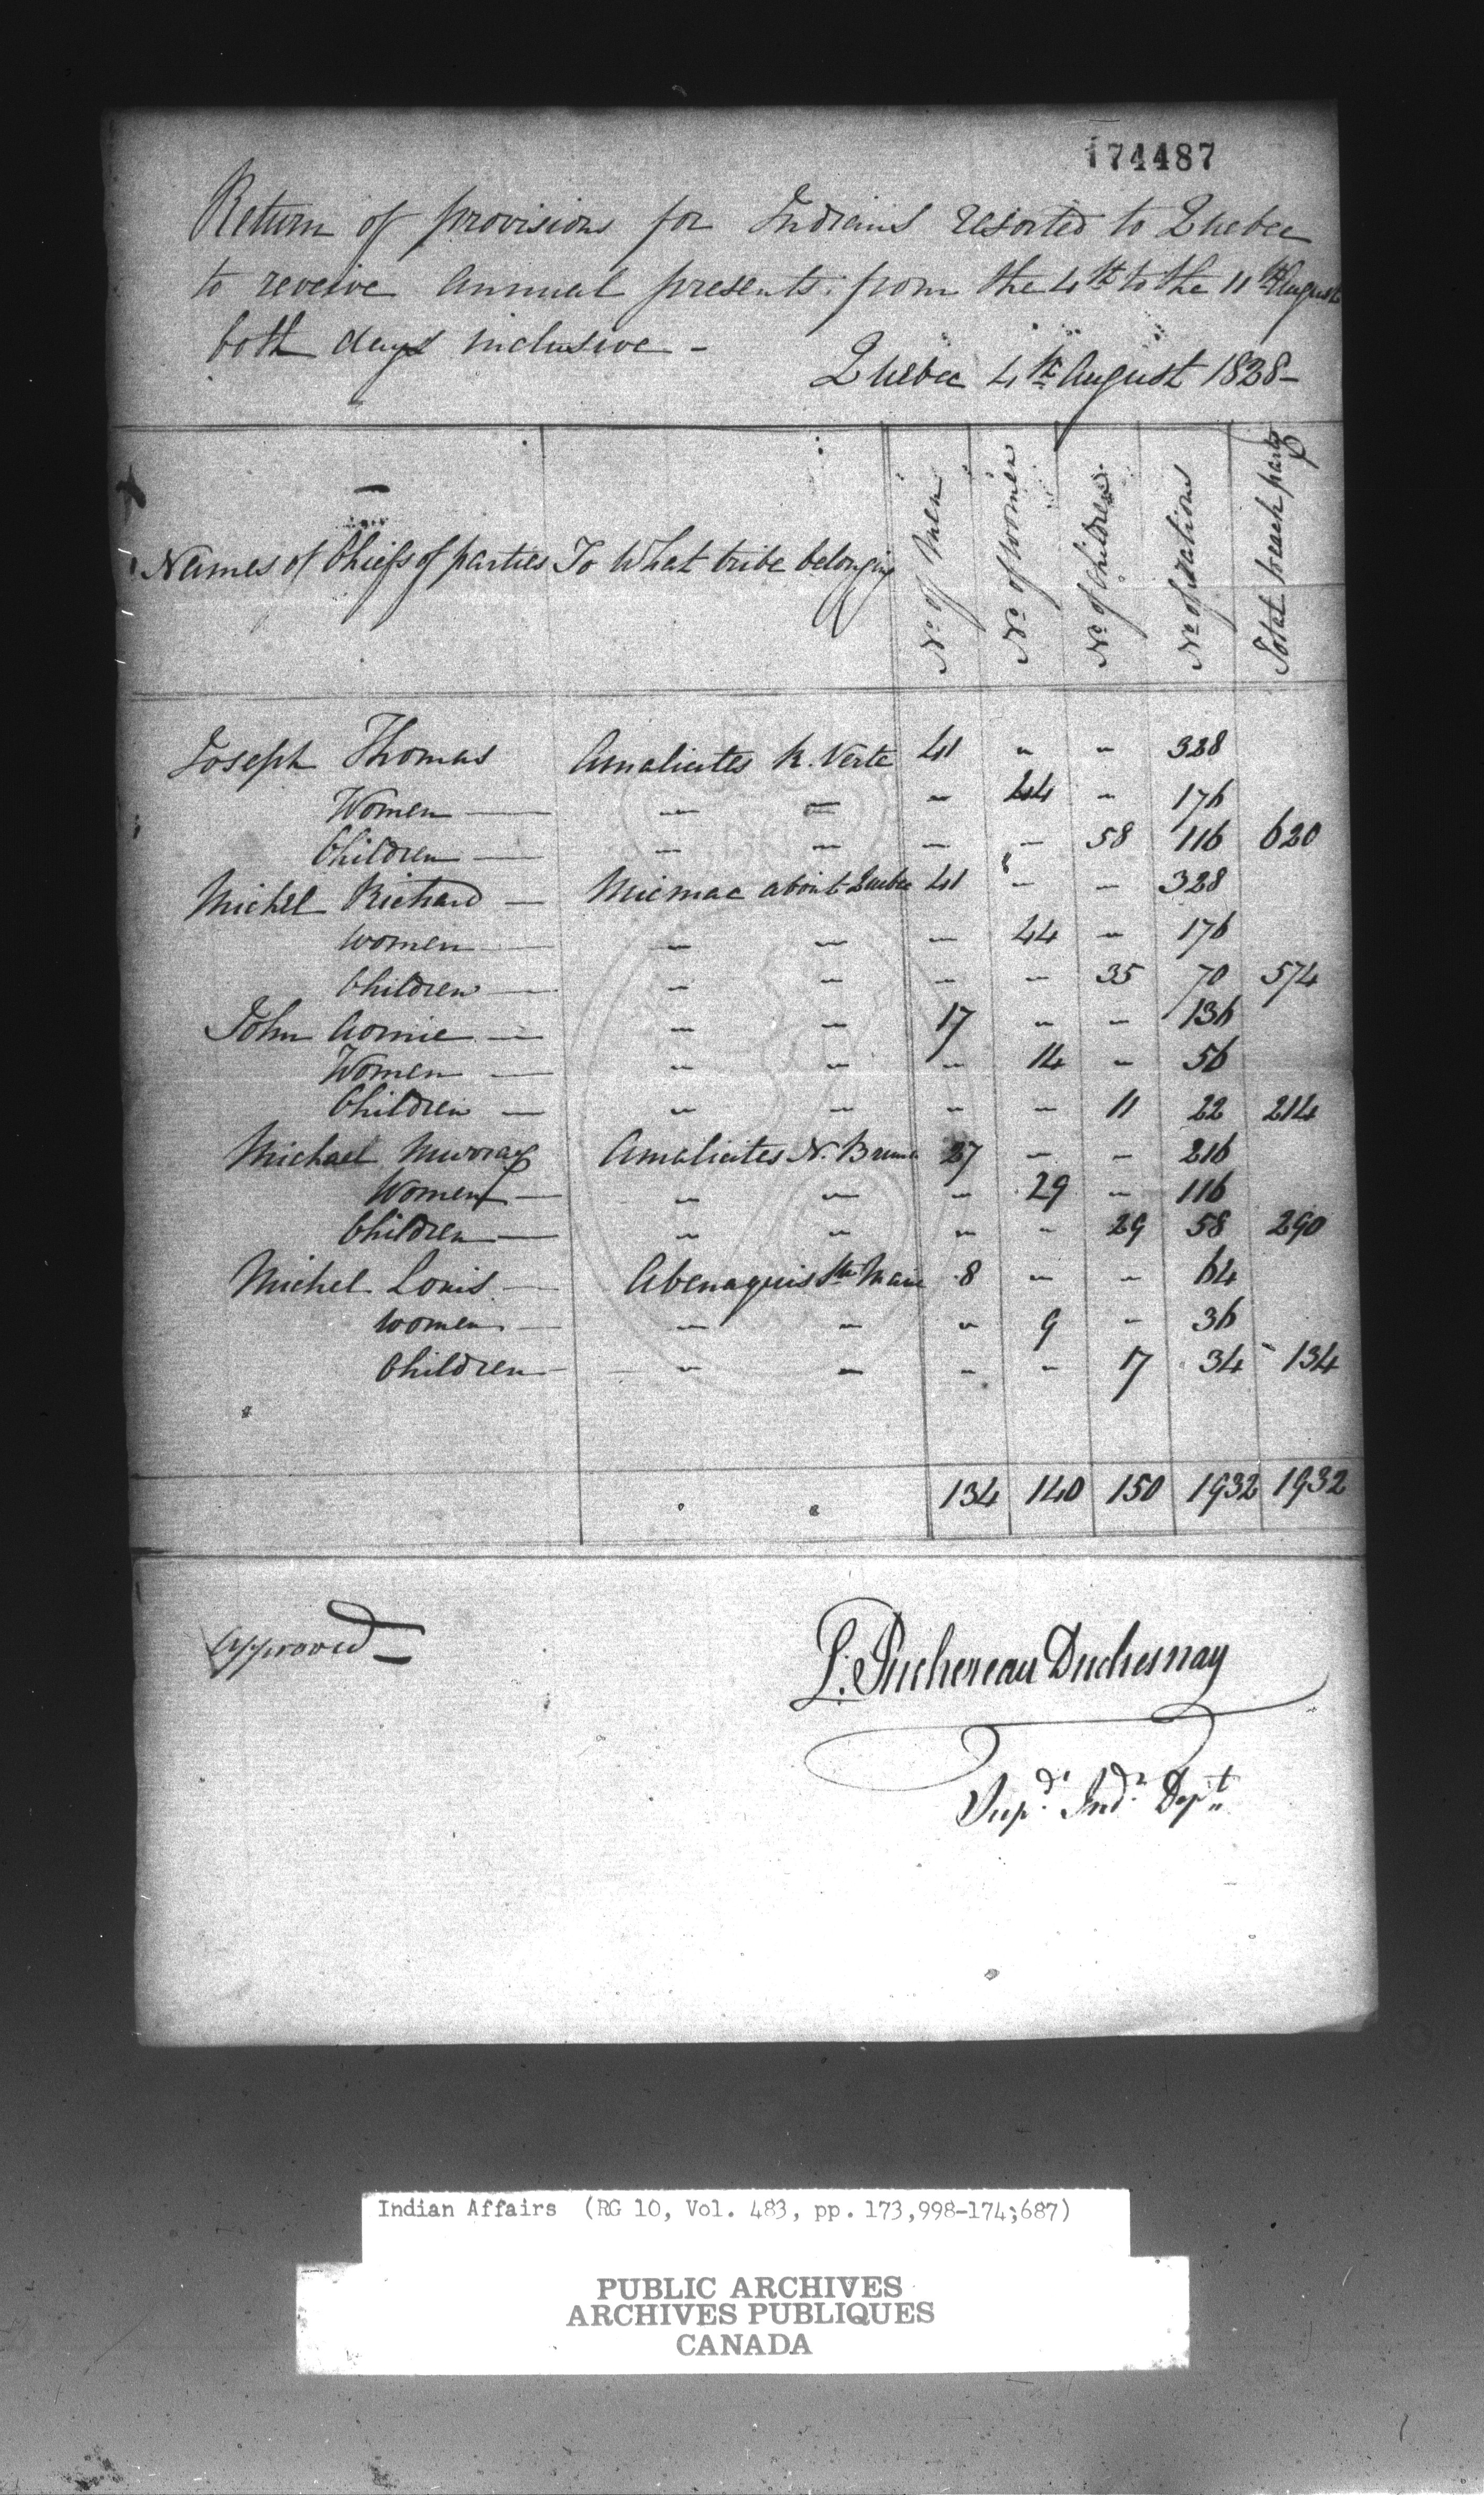 174487
Return of provisions for Indians resorted to Quebec
to receive Annual presents from the 4th to the 11th August
both days inclusive -
Quebec 4th August 1828 -
Names of Chiefs of parties To What tribe belonging No of Men No of Women No of Children No of Rations Total to each party
Joseph Thomas Amalicites R. Verte 41 " " 328
Women — " " " 44 " 176
Children — " " " " 58 116 620
Michel Richard — Micmac about Quebec 41 " " 328
Women — " " " 44 " 176
Children — " " " " 35 70 574
John — " " 17 " " 136
Women — " " " 14 " 56
Children — " " " " 11 22 214
Michael Murray Amalicites N. Bruns 27 " " 216
Women — " " " 29 " 116
Children — " " " " 29 58 290
Michel Louis — Abenaquis 8 " " 64
Women — " " " 9 " 36
Children — " " " " 17 34 134
134 140 150 1932 1932
Approved —
L. Juchereau Duchesnay
Supd. Ind. Dept
Indian Affairs (RG 10, Vol. 483, pp. 173,998-174;687)
PUBLIC ARCHIVES
ARCHIVES PUBLIQUES
CANADA